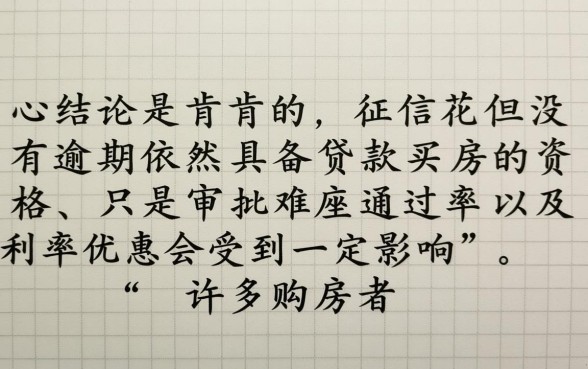 心结论是肯肯的，征信花但没
有逾期依然具备贷款买房的资
格、只是审批难座通过率以及
利率优惠会受到一定影响”。
“ 许多购房者